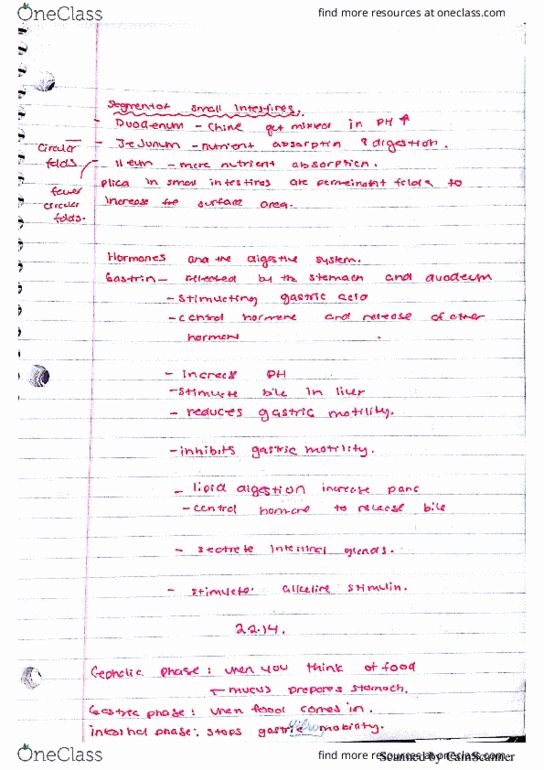 OneClass
find more resources at oneclass.com
Segment of small intestines.
- Duodenum - chime get mixed in PH ↑
Circular folds - Jejunum - nutrient absorptin & digestion.
fewer circular folds. - Ileum - more nutrient absorption.
plica in small intestines are permeinant folds to
increase the surface area.
Hormones and the digestive system.
Gastrin - released by the stomach and duodeum
- stimulting gastric acid
- central hormone and release of other
hormone
- increase PH
- stimulte bile in liver
- reduces gastric motility.
- inhibits gastric motility.
- lipid digestion increase panc
- central hormone to release bile
- secrete intestinal glands.
- stimulte alkaline stimulin.
22.14.
Cephalic phase: when you think of food
mucus prepares stomach.
Gastric phase: when food comes in.
intestnal phase: stops gastric mobility.
OneClass
find more resources at oneclass.com
Scanned by CamScanner